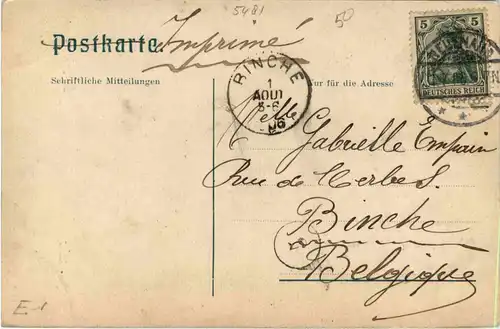 5481
50
Postkarte Imprimé
Schriftliche Mitteilungen
Nur für die Adresse
5 5
DEUTSCHES REICH
BINCHE
1
AOUT
06
Melle
Gabrielle Empain
Rue de Merbes.
Binche
Belgique
E-1